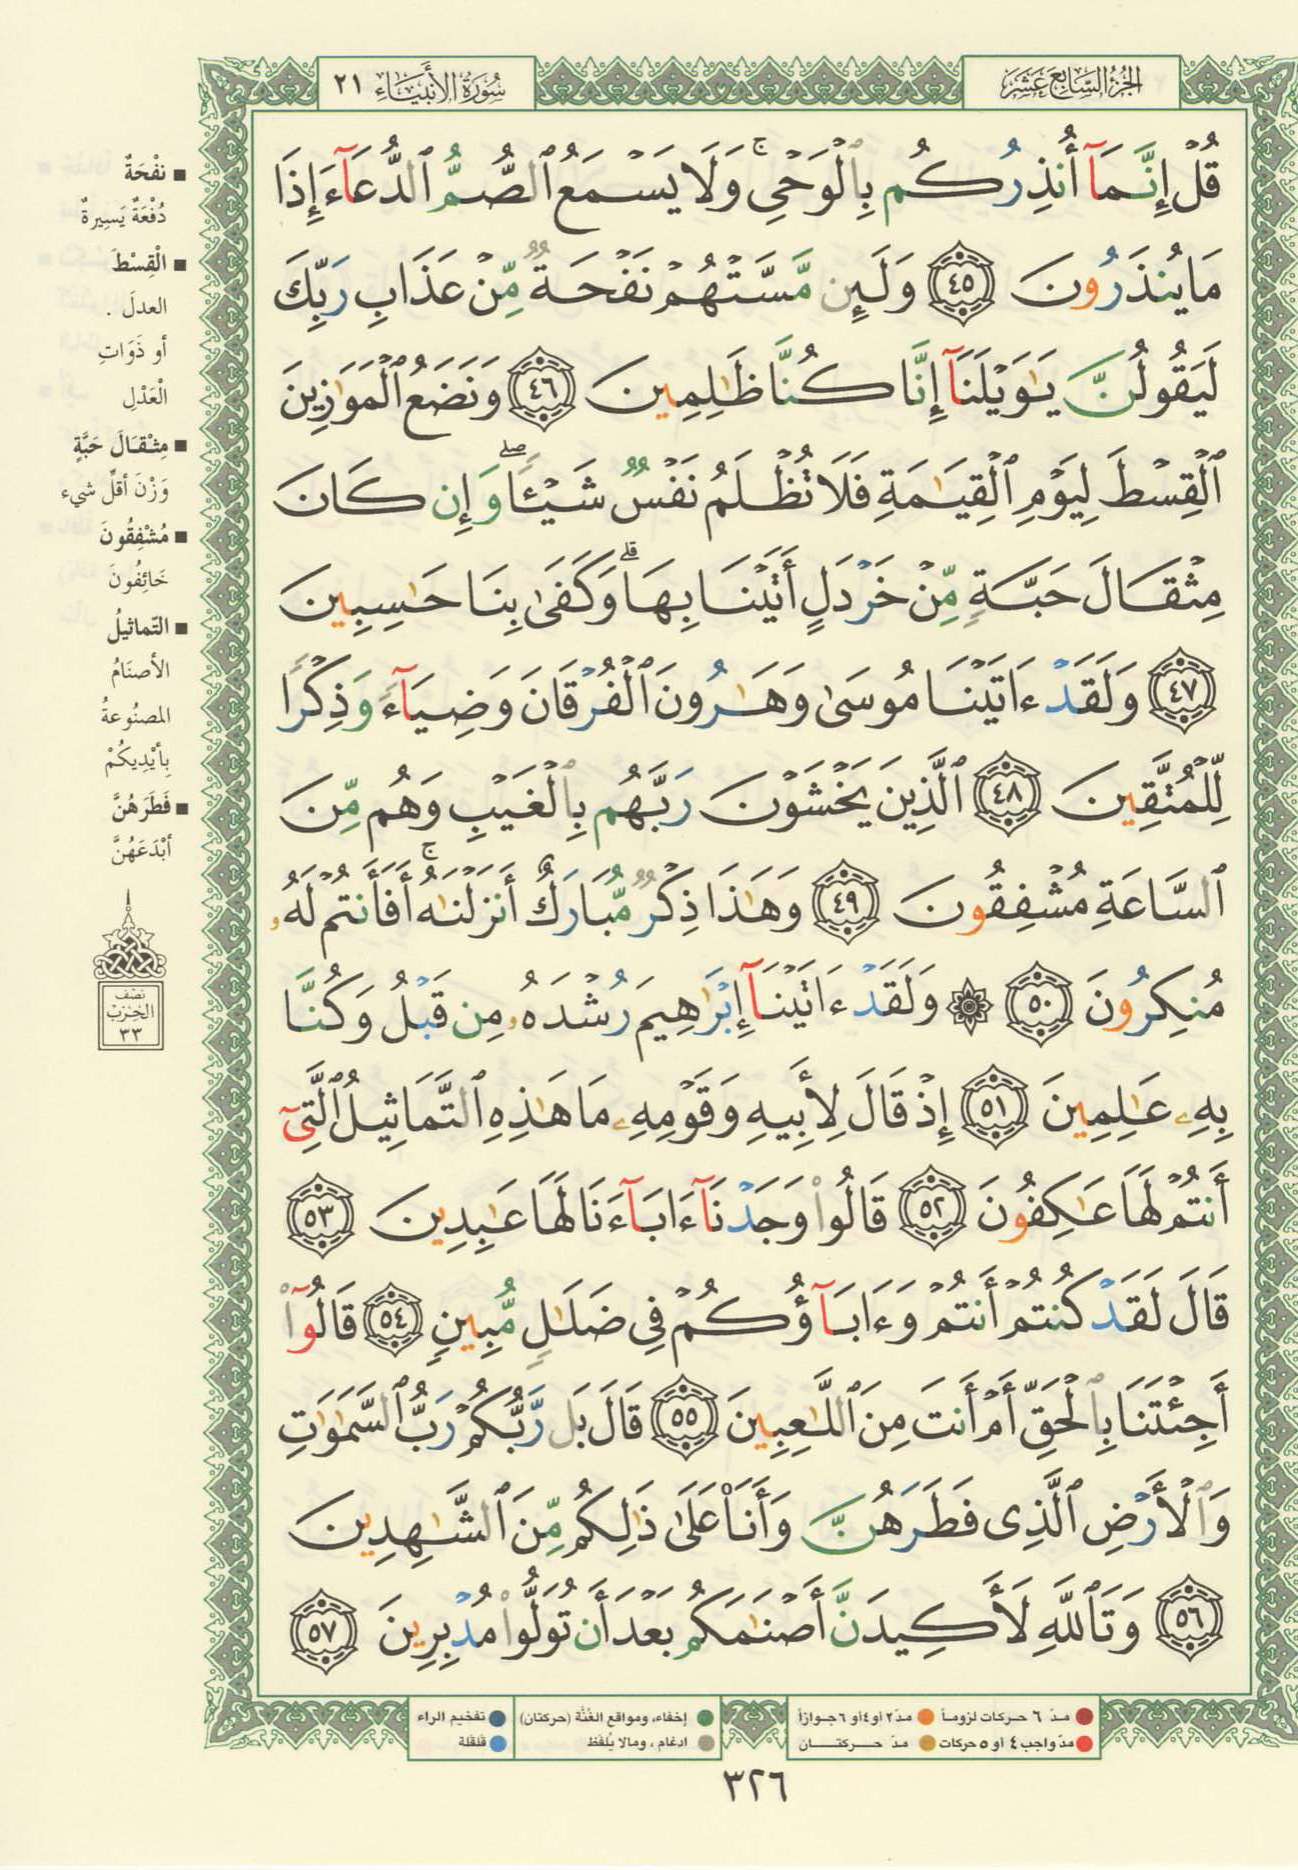 الجزء السابع عشر
سورة الأنبياء ٢١
قُلْ إِنَّمَآ أُنذِرُكُم بِٱلْوَحْىِ ۚ وَلَا يَسْمَعُ ٱلصُّمُّ ٱلدُّعَآءَ إِذَا
مَا يُنذَرُونَ ٤٥ وَلَئِن مَّسَّتْهُمْ نَفْحَةٌ مِّنْ عَذَابِ رَبِّكَ
لَيَقُولُنَّ يَٰوَيْلَنَآ إِنَّا كُنَّا ظَٰلِمِينَ ٤٦ وَنَضَعُ ٱلْمَوَٰزِينَ
ٱلْقِسْطَ لِيَوْمِ ٱلْقِيَٰمَةِ فَلَا تُظْلَمُ نَفْسٌ شَيْـًٔا ۖ وَإِن كَانَ
مِثْقَالَ حَبَّةٍ مِّنْ خَرْدَلٍ أَتَيْنَا بِهَا ۗ وَكَفَىٰ بِنَا حَٰسِبِينَ
٤٧ وَلَقَدْ ءَاتَيْنَا مُوسَىٰ وَهَٰرُونَ ٱلْفُرْقَانَ وَضِيَآءً وَذِكْرًا
لِّلْمُتَّقِينَ ٤٨ ٱلَّذِينَ يَخْشَوْنَ رَبَّهُم بِٱلْغَيْبِ وَهُم مِّنَ
ٱلسَّاعَةِ مُشْفِقُونَ ٤٩ وَهَٰذَا ذِكْرٌ مُّبَارَكٌ أَنزَلْنَٰهُ ۚ أَفَأَنتُمْ لَهُۥ
مُنكِرُونَ ٥٠ ۞ وَلَقَدْ ءَاتَيْنَآ إِبْرَٰهِيمَ رُشْدَهُۥ مِن قَبْلُ وَكُنَّا
بِهِۦ عَٰلِمِينَ ٥١ إِذْ قَالَ لِأَبِيهِ وَقَوْمِهِۦ مَا هَٰذِهِ ٱلتَّمَاثِيلُ ٱلَّتِىٓ
أَنتُمْ لَهَا عَٰكِفُونَ ٥٢ قَالُوا۟ وَجَدْنَآ ءَابَآءَنَا لَهَا عَٰبِدِينَ ٥٣
قَالَ لَقَدْ كُنتُمْ أَنتُمْ وَءَابَآؤُكُمْ فِى ضَلَٰلٍ مُّبِينٍ ٥٤ قَالُوٓا۟
أَجِئْتَنَا بِٱلْحَقِّ أَمْ أَنتَ مِنَ ٱللَّٰعِبِينَ ٥٥ قَالَ بَل رَّبُّكُمْ رَبُّ ٱلسَّمَٰوَٰتِ
وَٱلْأَرْضِ ٱلَّذِى فَطَرَهُنَّ وَأَنَا۠ عَلَىٰ ذَٰلِكُم مِّنَ ٱلشَّٰهِدِينَ
٥٦ وَتَٱللَّهِ لَأَكِيدَنَّ أَصْنَٰمَكُم بَعْدَ أَن تُوَلُّوا۟ مُدْبِرِينَ ٥٧
■ نَفْحَةٌ
دُفْعَةٌ يَسِيرةٌ
■ الْقِسْطَ
العدلَ .
أو ذَوَاتِ
الْعَدْلِ
■ مِثْقَالَ حَبَّةٍ
وَزْنَ أقلِّ شيء
■ مُشْفِقُونَ
خَائِفُونَ
■ التّماثيلُ
الأصنَامُ
المصنُوعةُ
بِأيْدِيكُمْ
■ فَطَرَهُنَّ
أبْدَعَهُنَّ
نصف
الحزب
٣٣
مدّ ٦ حركات لزوماً ● مدّ ٢ أو ٤ أو ٦ جوازاً
مدّ واجب ٤ أو ٥ حركات ● مدّ حركتان
إخفاء، ومواقع الغُنَّة (حركتان) ● تفخيم الراء
ادغام ، ومالا يُلفَظ ● قلقلة
٣٢٦